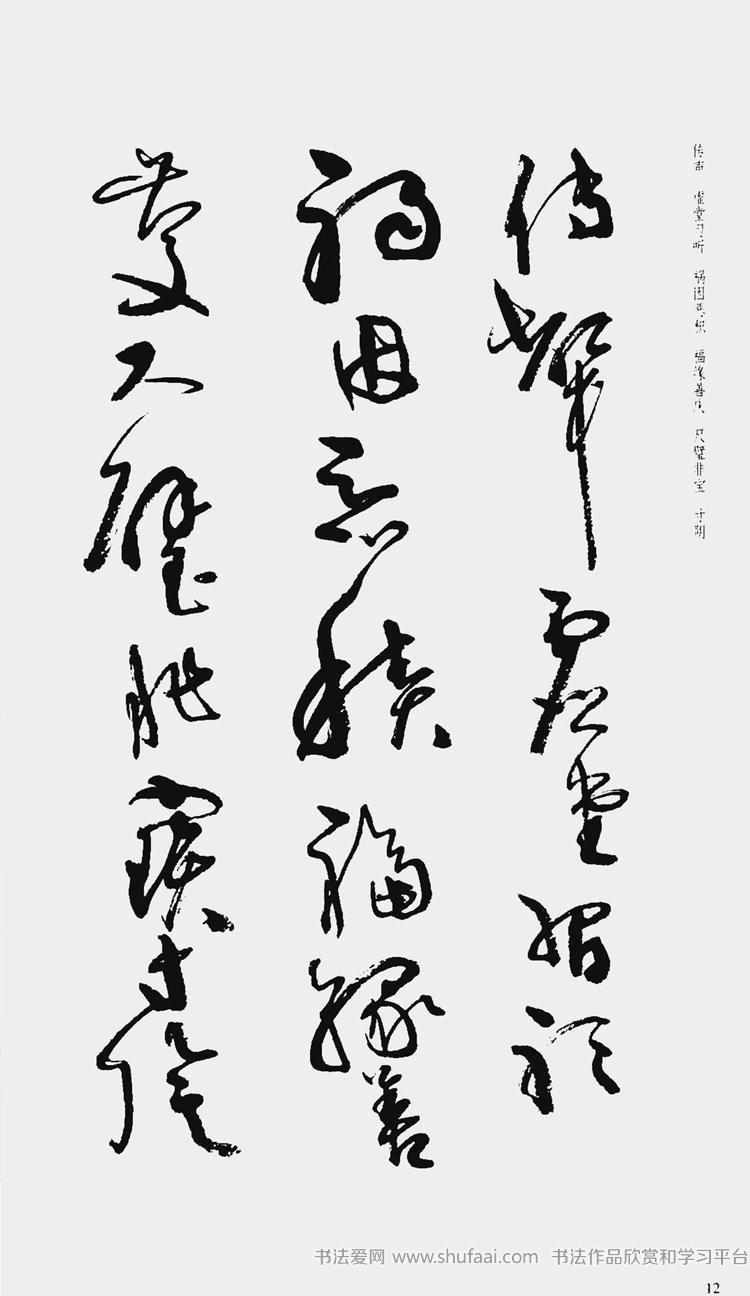 传声　虚堂习听　祸因恶积　福缘善庆　尺璧非宝　寸阴
傳聲虛堂習聽
禍因惡積福緣善
慶尺璧非寶寸陰
书法爱网 www.shufaai.com 书法作品欣赏和学习平台
12